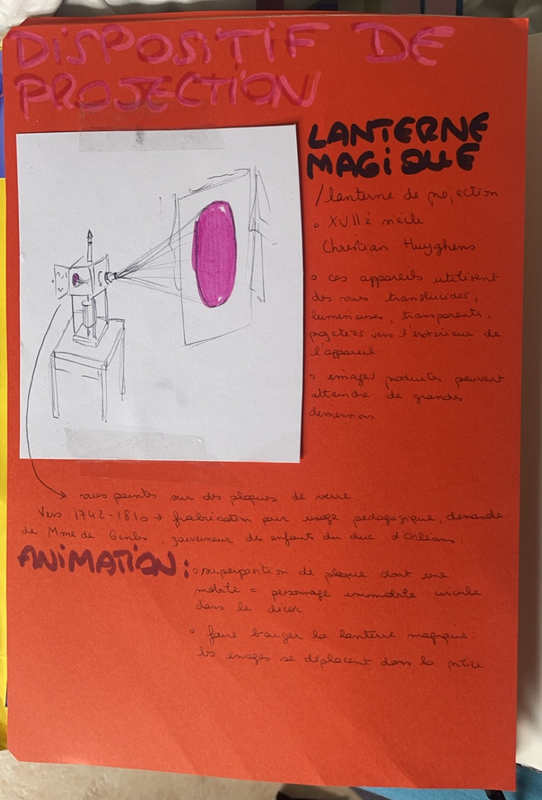 DISPOSITIF DE
PROJECTION
LANTERNE
MAGIQUE
/lanterne de projection
• XVIIè siècle
Christian Huyghens
• ces appareils utilisent
des vues translucides,
lumineuses, transparents,
projetées vers l'extérieur de
l'appareil
• images produites peuvent
atteindre de grandes
dimensions
→ vues peintes sur des plaques de verre
Vers 1742-1810 → frabrication pour usage pédagogique, demande
de Mme de Genlis, gouverneur des enfants du duc d'Orléans.
ANIMATION : • superposition de plaque dont une
mobile = personnage immobile
dans le décor
• faire bouger la lanterne magique:
les images se déplacent dans la pièce